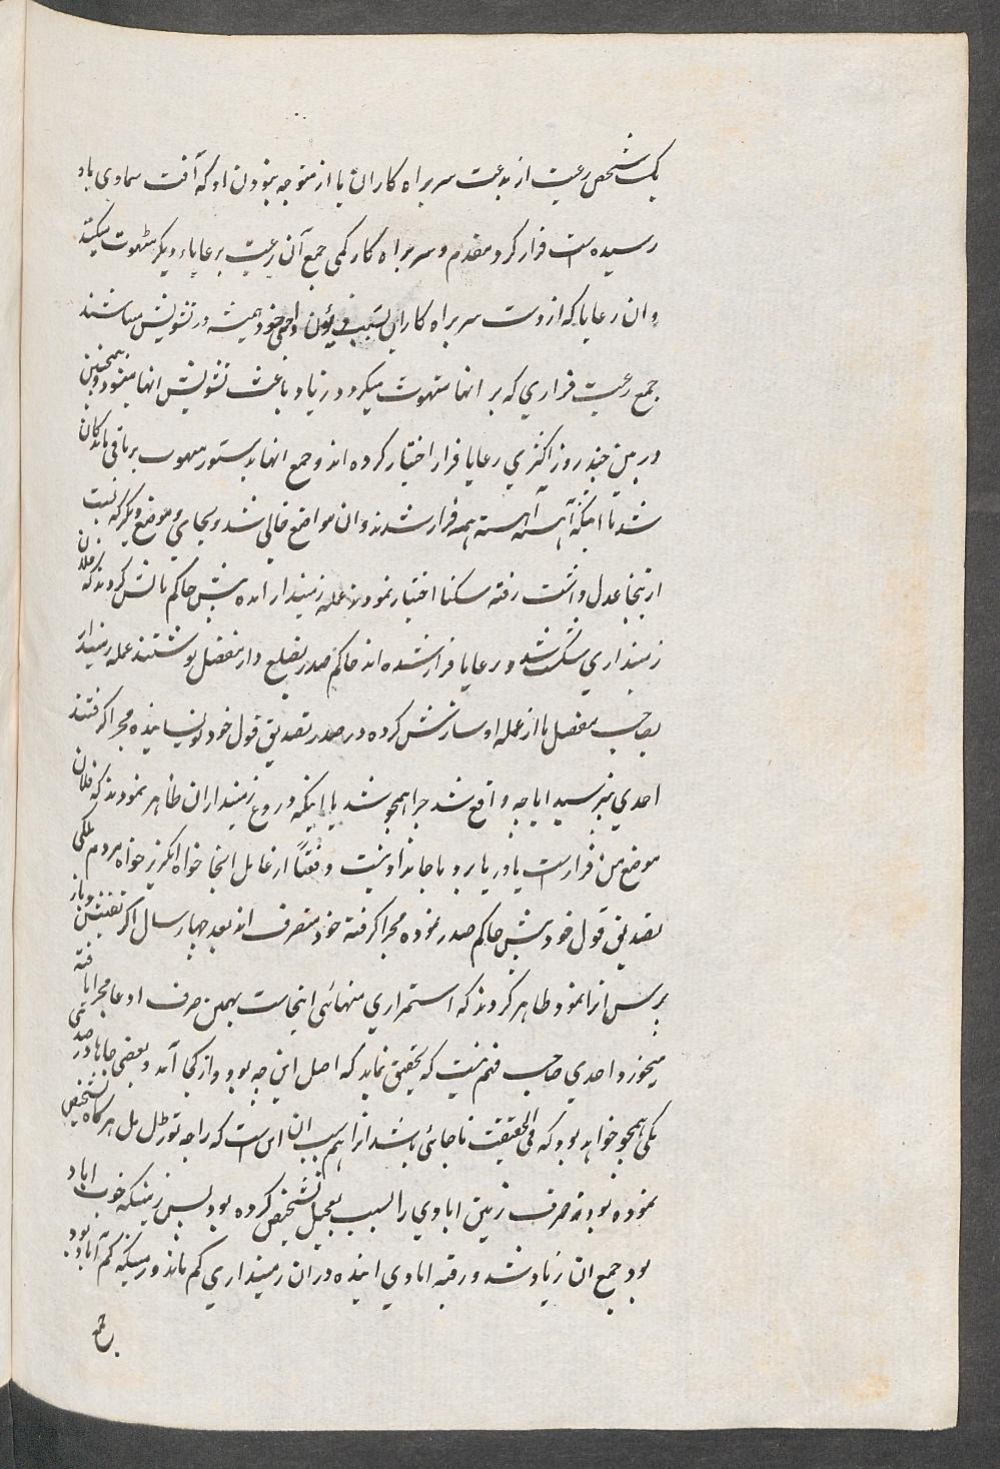 یک شخص رعیت از بدعت سربراه کاران یا از متوجه نبودن او که آفت سماوی باو
رسیده است فرار کرد مقدم و سربراه کار کمی جمع آن رعیت بر عایاء دیکر متهوت میکند
و ان رعایا که از دست سربراه کاران بسبب خود همیشه در تشویش میباشند
جمع رعیت فراری که بر انها متهوت میکردد زیاد باعث تشویش انها میشود و همچنین
در بین چند روز اکثری رعایا فرار اختیار کرده اند و جمع انها بدستور متهوت بر باقی ماندکان
شد تا اینکه آهسته آهسته همه فرار شدند و ان مواضع خالی شد و بجای و موضع دیکر که نسبت
از ینجا عدل داشت رفته سکنا اختیار نمودند عمله زمیندار امده پیش حاکم نالش کردند که فلان
زمینداری شکست شد و رعایا فرار شده اند حاکم صدر بضلع دار مفصل نوشتند عمله زمیندار
بصاحب مفصل یا از عمله او سازش کرده در صدر تصدیق قول خود نویسانیده مجرا کرفتند
احدی نپرسید ایا چه واقع شد چرا همچو شد یا اینکه دروغ زمینداران ظاهر نمودند که فلان
موضع من فرار است یا دریا برد یا جاندار نیست دفعتاً از عامل انجا خواه انکریز خواه مردم ملکی
تصدیق قول خود پیش حاکم صدر نموده مجرا کرفته خود متصرف اند بعد چهار سال اکر تفتیش و باز
پرس انرا نمود ظاهر کردند که استمراری منهائی اینجاست بهمین حرف ادعا مجرا یافته
میخورد احدی صاحب فهم نیست که تحقیق نماید که اصل این چه بود و از کجا آمد و بعضی جاها در صد
یکی همچو خواهد بود که فی الحقیقت ناجائی باشد انرا هم سبب ان است که راجه تودرمل هر کاه تشخیص
نموده بودند صرف زمین ابادی را بسبب تعجیل تشخیص کرده بود پس زمینیکه خوب اباد
بود جمع ان زیاد شد و رقبه ابادی اینده در ان زمینداری کم ماند و زمینیکه کم آباد بود
جمع